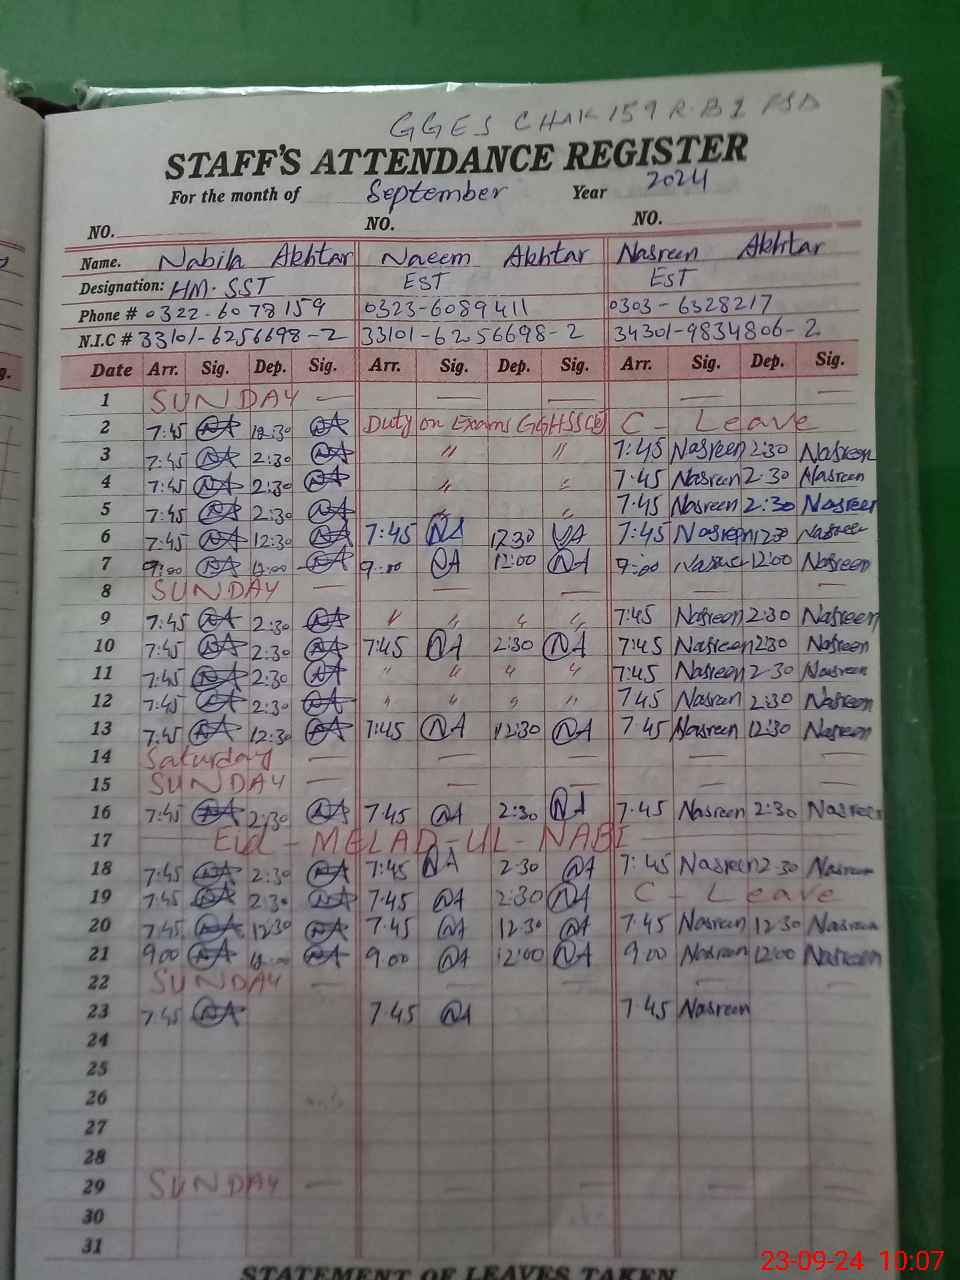 GGES CHAK 159 R.B I FSD
STAFF'S ATTENDANCE REGISTER
For the month of September Year 2024
NO. NO. NO.
Name. Nabila Akhtar Naeem Akhtar Nasreen Akhtar
Designation: HM. SST EST EST
Phone # 0322-6078159 0323-6089411 0303-6328217
N.I.C # 33101-6256698-2 33101-6256698-2 34301-9834806-2
g. Date Arr. Sig. Dep. Sig. Arr. Sig. Dep. Sig. Arr. Sig. Dep. Sig.
1 SUNDAY — — — — —
2 7:45 NA 12:30 NA Duty on Exams C - Leave
3 7:45 NA 2:30 NA " " 7:45 Nasreen 2:30 Nasreen
4 7:45 NA 2:30 NA " " 7.45 Nasreen 2.30 Nasreen
5 7:45 NA 2:30 NA " " 7.45 Nasreen 2:30 Nasreen
6 7:45 NA 12:30 NA 7:45 NA 12 30 NA 7:45 Nasreen 12 30 Nasreen
7 9:00 NA 12:00 NA 9:00 NA 12:00 NA 9:00 Nasreen 12:00 Nasreen
8 SUNDAY — — — — —
9 7:45 NA 2:30 NA " " " " 7:45 Nasreen 2:30 Nasreen
10 7:45 NA 2:30 NA 7:45 NA 2:30 NA 7:45 Nasreen 2:30 Nasreen
11 7:45 NA 2:30 NA " " " " 7:45 Nasreen 2:30 Nasreen
12 7:45 NA 2:30 NA " " " " 7 45 Nasreen 2:30 Nasreen
13 7:45 NA 12:30 NA 7:45 NA 12:30 NA 7 45 Nasreen 12:30 Nasreen
14 Saturday — — — — —
15 SUNDAY — — — — —
16 7:45 NA 2:30 NA 7.45 NA 2:30 NA 7.45 Nasreen 2:30 Nasreen
17 Eid - MELAD - UL - NABI
18 7:45 NA 2:30 NA 7:45 NA 2.30 NA 7:45 Nasreen 2.30 Nasreen
19 7:45 NA 2:30 NA 7.45 NA 2:30 NA C - Leave
20 7:45 NA 12:30 NA 7.45 NA 12.30 NA 7.45 Nasreen 12.30 Nasreen
21 9 00 NA 12:00 NA 9 00 NA 12:00 NA 9 00 Nasreen 12:00 Nasreen
22 SUNDAY — — — — —
23 7:45 NA 7.45 NA 7 45 Nasreen
24
25
26
27
28
29 SUNDAY — — — — —
30
31
STATEMENT OF LEAVES TAKEN
23-09-24 10:07